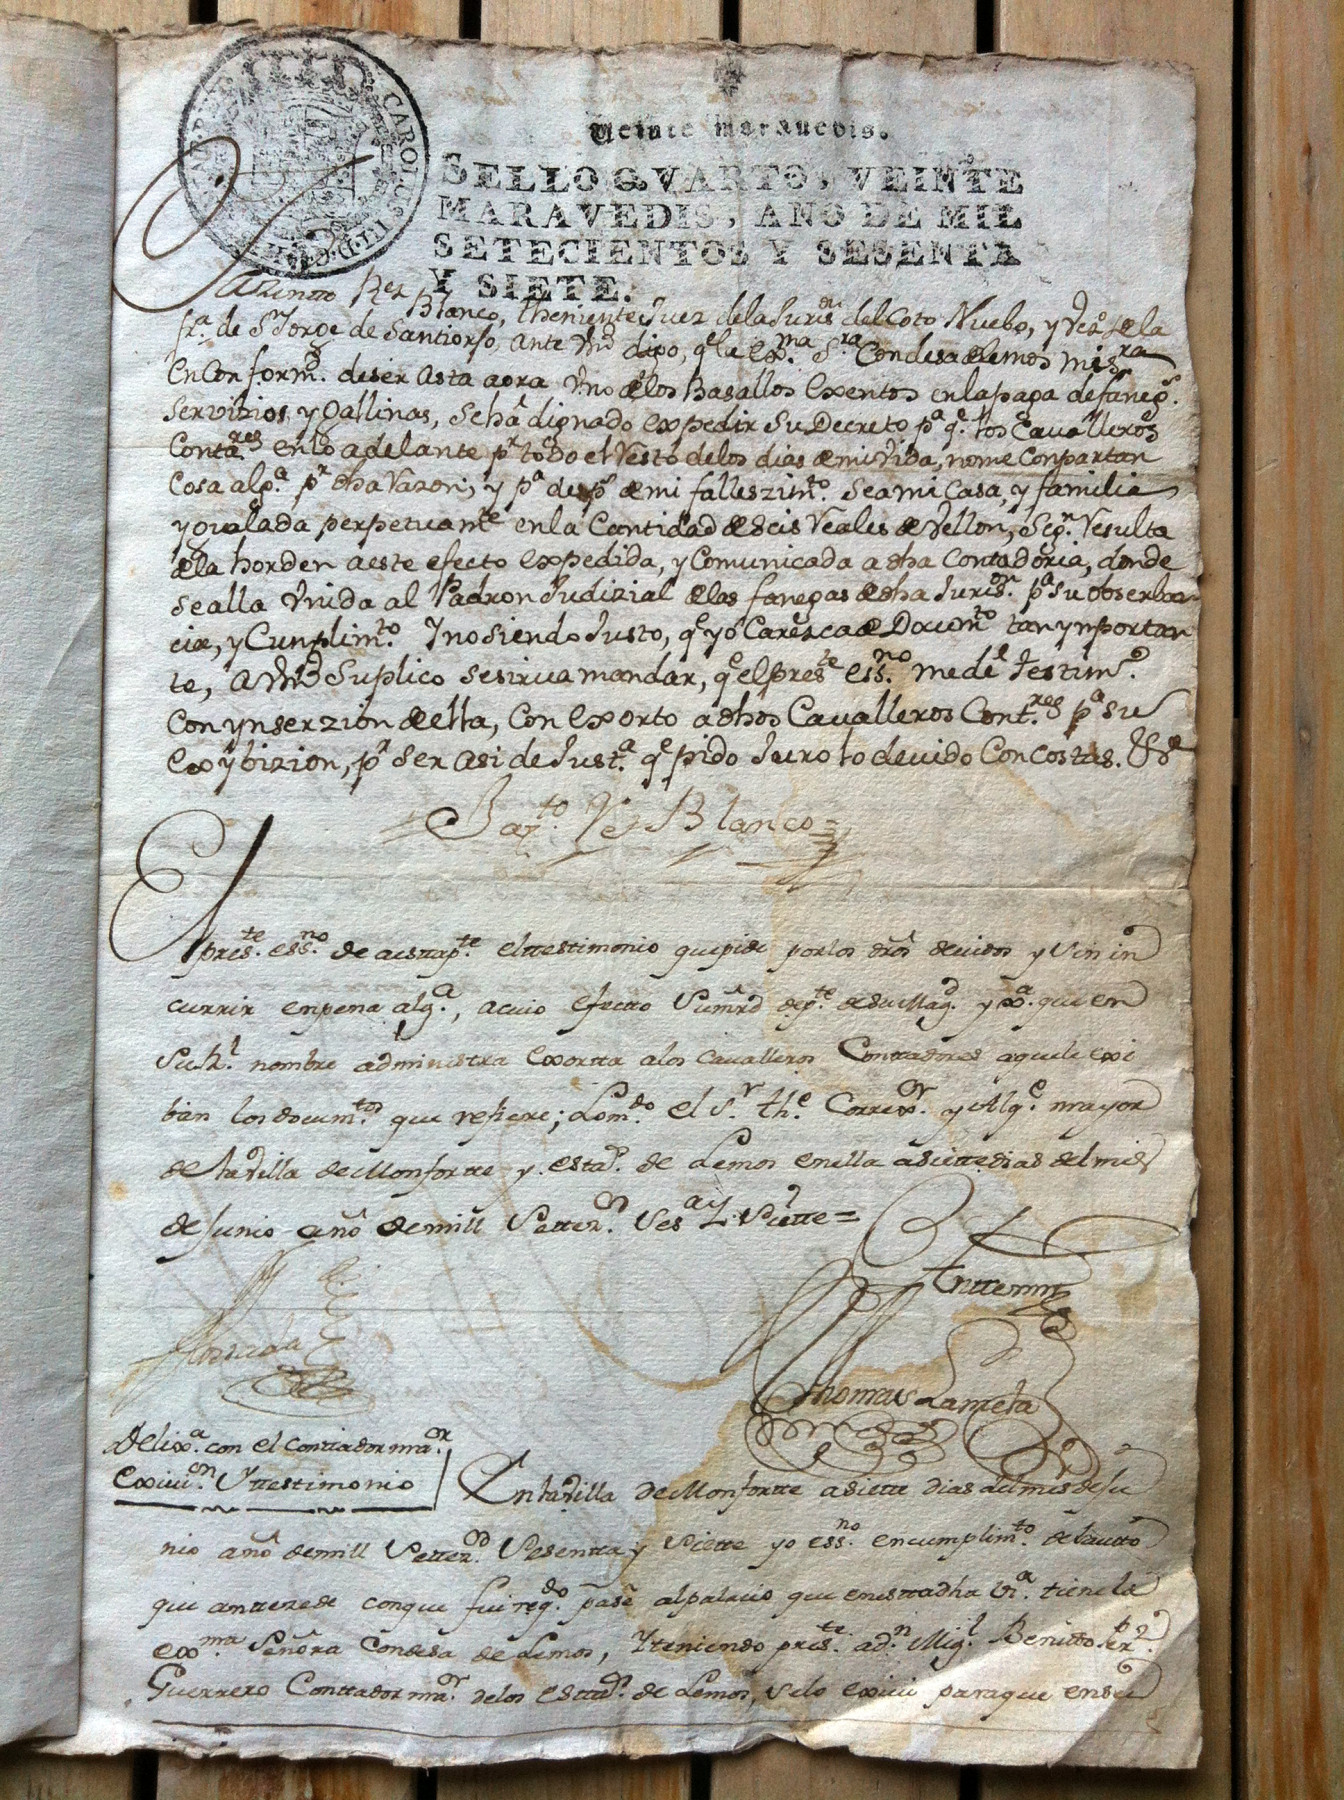 CAROLUS III D G
Veinte marauedis.
SELLO QVARTO, VEINTE
MARAVEDIS, AÑO DE MIL
SETECIENTOS Y SESENTA
Y SIETE.
Blanco, theniente Juez dela Juris.on del Coto Nuebo, y Vez.o de la
fr.a de Sn Jorge de Santiorso, Ante Vm.d digo, q.e la Ex.ma S.ra Condesa de Lemos mi S.ra
En Conform.d de ser asta aora Vno de los Basallos Exentos en la paga de faneg.s
Servizios, y Gallinas, se ha dignado expedir su Decreto p.a q.e los Cavalleros
Conta.res en lo adelante p.r todo el Resto de los dias de mi Vida, no me Conpartan
Cosa alg.a p.r dha Razon; y p.a desp.s de mi falleszim.to sea mi Casa, y familia
ygualada perpetuam.te en la Cantidad de seis Reales de Vellon, Seg.n Resulta
de la horden a este efecto expedida, y Comunicada a dha Contadoria, donde
se alla Vnida al Padron Judizial de las fanegas de dha Juris.on p.a su obserban
cia, y Cunplim.to Y no siendo Justo, q.e yo Caresca de Docum.to tan ynportan
te, A Vm.d Suplico se sirua mandar, q.e el pres.te ess.no me de testim.o
Con ynserzion de ella, Con exorto a dhos Cavalleros Cont.res p.a su
Exybizion, p.r Ser asi de Just.a q.e pido Juro lo devido Con costas. &a
Jaz.to Rs Blanco
El pres.te ess.no de a esta p.te el ttestimonio que pide por los dros devidos y sin in
currir en pena alg.a, a cuio efectto Su mrd de p.te de su Mag.d y Ex.a que en
su R.l nombre administra Exortta a los Cavalleros Conttadores a que le exi
ban los docum.tos que refiere; Lo m.do el S.r th.e Correx.or y Alg.l mayor
de la villa de Monfortte y esta.do de Lemos en ella a siette dias del mes
de Junio año de mill Settez.os Ses.ta y Siette =
Antte mi
Losada
Thomas Lamela
Dilix.a con el conttador ma.or
Exiui.on y ttestimonio
En la villa de Monfortte a siette dias del mes de Ju
nio año de mill Settez.os Sesentta y Siette yo ess.no en cumplim.to del autto
que anttezede con que fui req.do pasé al palacio que en esta dha Vi.a tiene la
Ex.ma Señora Condesa de Lemos, Y teniendo pres.te a d.n Mig.l Benitto
Guerrero Conttador ma.or de los estta.dos de Lemos, se lo exiui para que en su